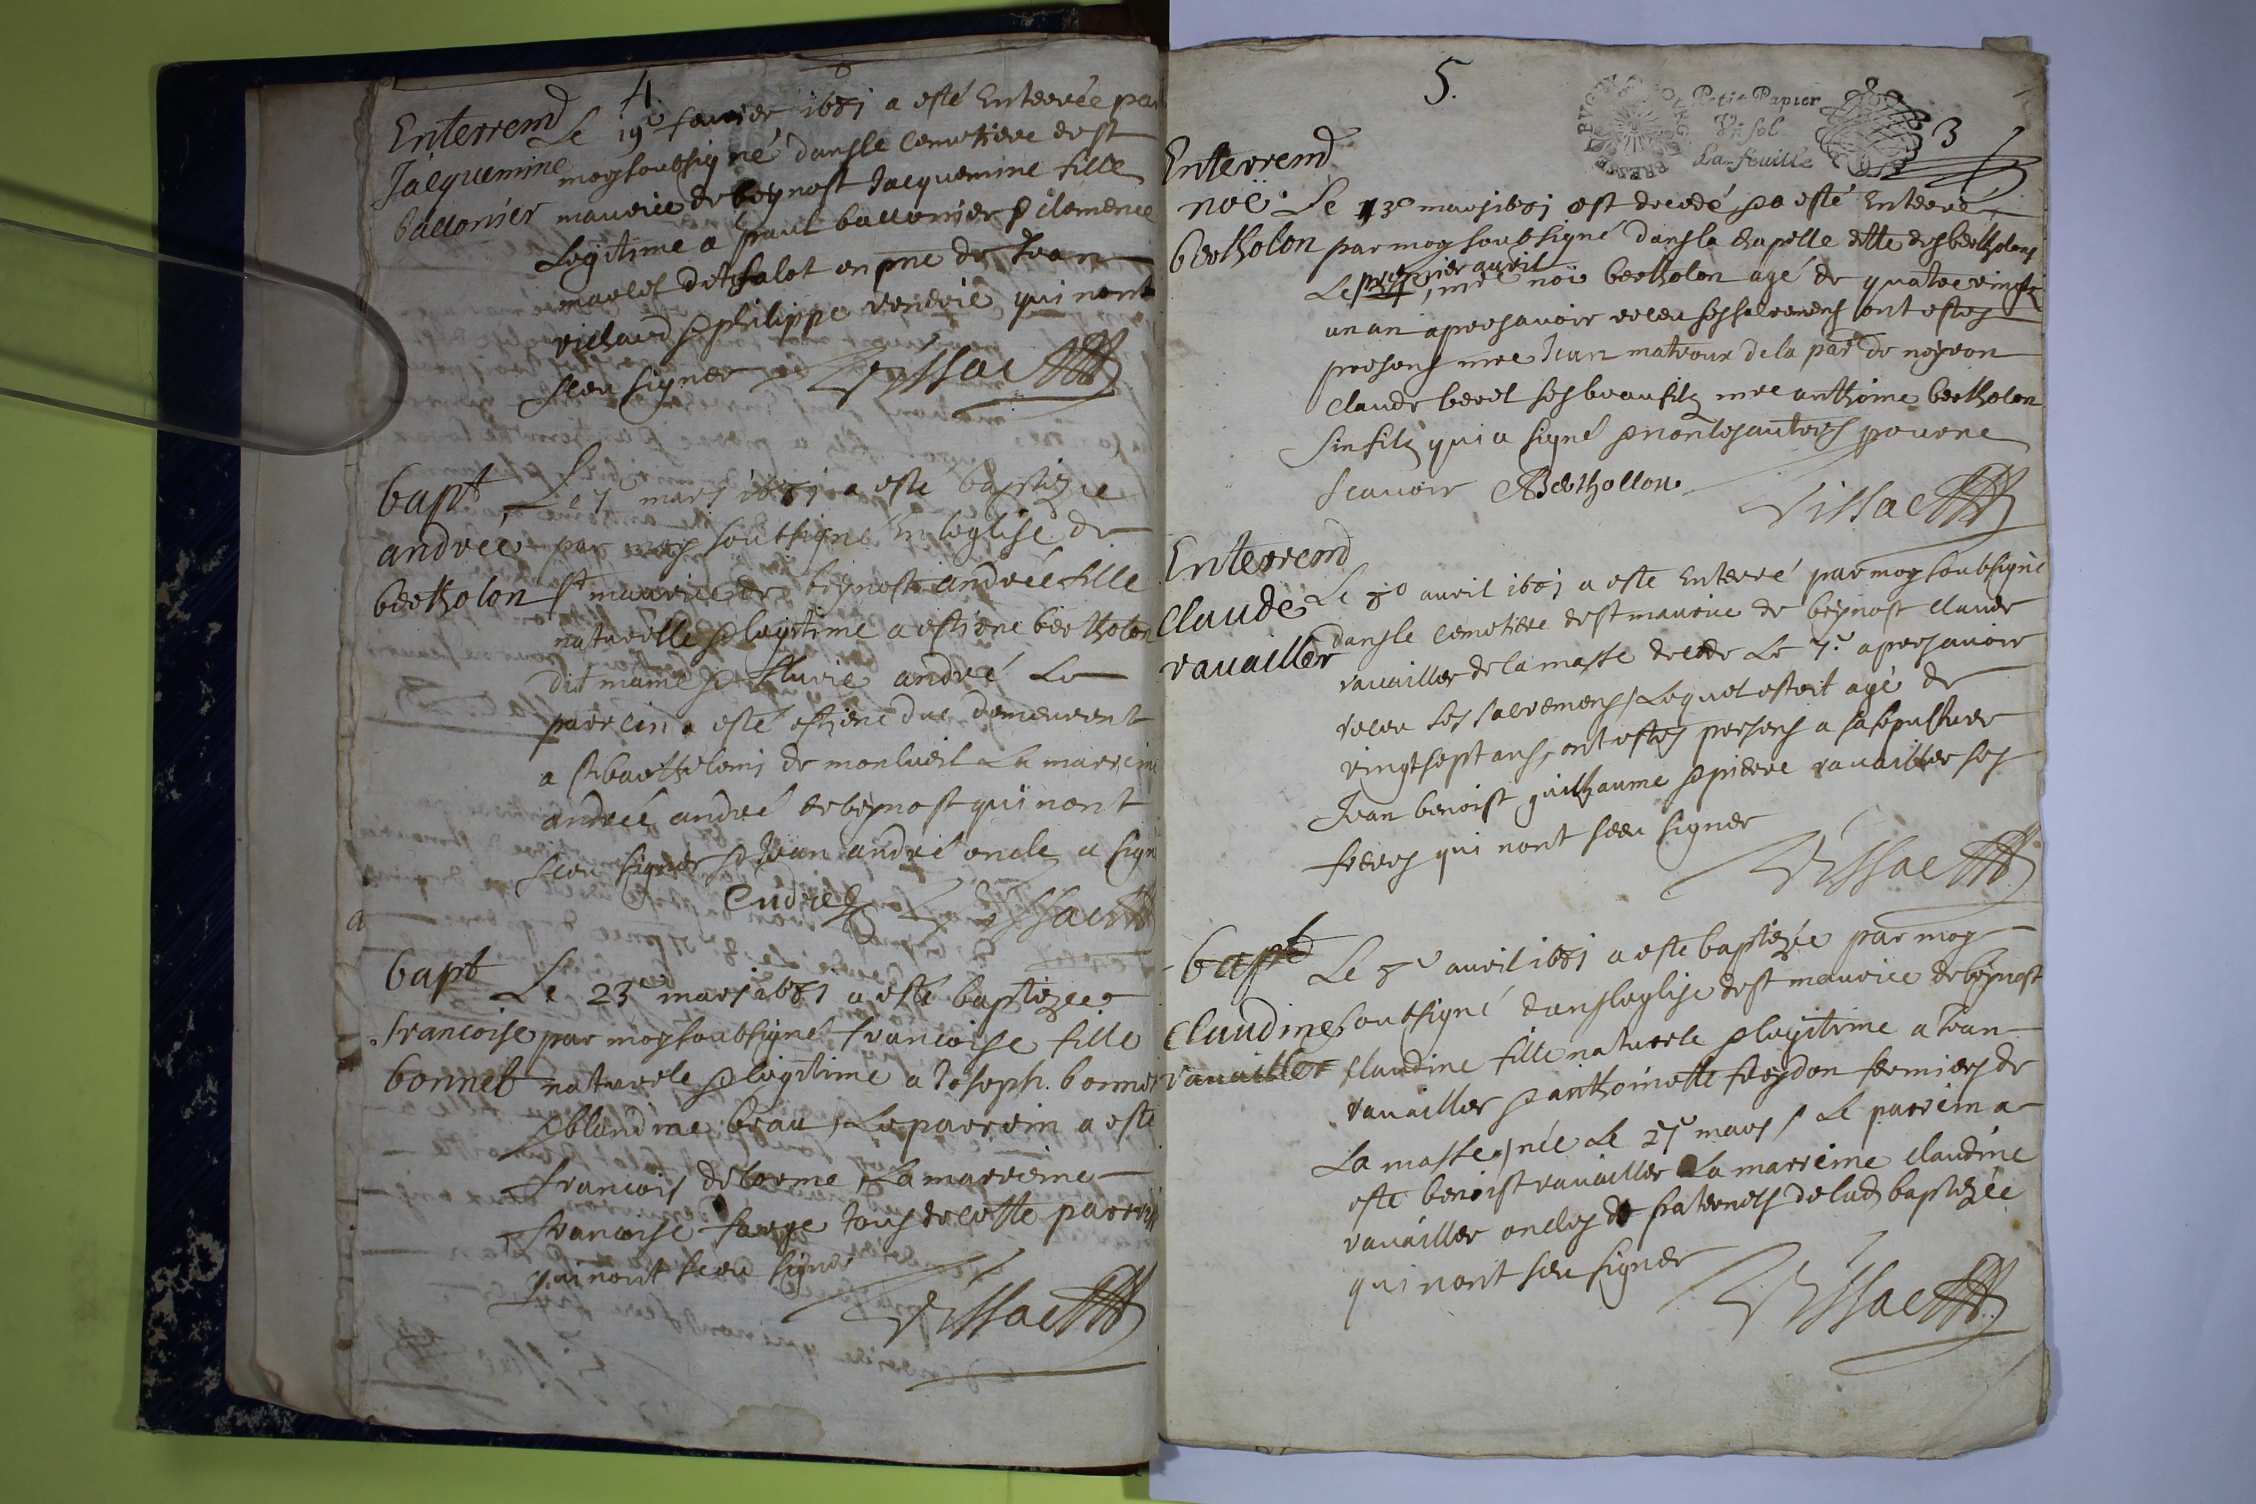 4.
Enterremt
Jacquemine
ballonier
Le 19e fevrier 1681 a esté Enterrée par
moy soubsigné dans le cemetiere de st
maurice de beynost Jacquemine fille
Legitime a paul ballonier & clemence
dit falot en pnce de Jean
richard & philippe qui nont
sceu signer Vissac
bapt
andree
bertholon
Le 7 mars 1681 a esté baptizee
par moy soubsigné En leglise de
st maurice de beynost andrée fille
naturelle & legitime a estiene bertholon
dit mame & andré Le
parrein a esté estiene duc demeurent
a st barthelemi de monluel La marreine
andreé andré de beynost qui nont
sceu signer & Jean andre oncle a signé
Vissac
bapt
francoise
bonnet
Le 23e mars 1681 a esté baptizee
par moy soubsigné francoise fille
naturele & legitime a Joseph bonnet
& blandine beau, Le parrein a esté
francois delorme, La marreine
francoise farge tous de cette parroisse
qui nont sceu signer
Vissac
5.
Petit Papier
Vn sol
La feuille
3
Enterremt
noë
bertholon
Le 3e mars 1681 est decedé & a esté Enterré
par moy soubsigné dans la chapelle ditte des bertholons
Le premier avril, mre noë bertholon agé de quatre vingts
un an apres avoir receu ses sacremens ont estes
presens mre Jean matroux de la par de neyron
claude beril ses beaufils mre anthoine bertholon
sin fils qui a signé & non les autres pour ne
scavoir Berthollon
Vissac
Enterremt
Claude
ravailler
Le 8e avril 1681 a este Enterré par moy soubsigné
dans le cemetiere de st maurice de beynost claude
ravailler de la masse decede Le 7e apres avoir
receu ses sacremens, Lequel estoit agé de
vingt sept ans, ont estes presens a sa sepulture
Jean benoist guilhaume & pierre ravailler ses
freres qui nont sceu signer
Vissac
bapt
Claudine
ravailler
Le 8e avril 1681 a este baptizée par moy
soubsigné dans leglise de st maurice de beynost
claudine fille naturele & legitime a Jean
ravailler & anthoinette freydon fermiers de
La masse, née Le 27e mars, Le parrein a
este benoist ravailler La marreine claudine
ravailler oncles paternels de lad baptizée
qui nont sceu signer
Vissac